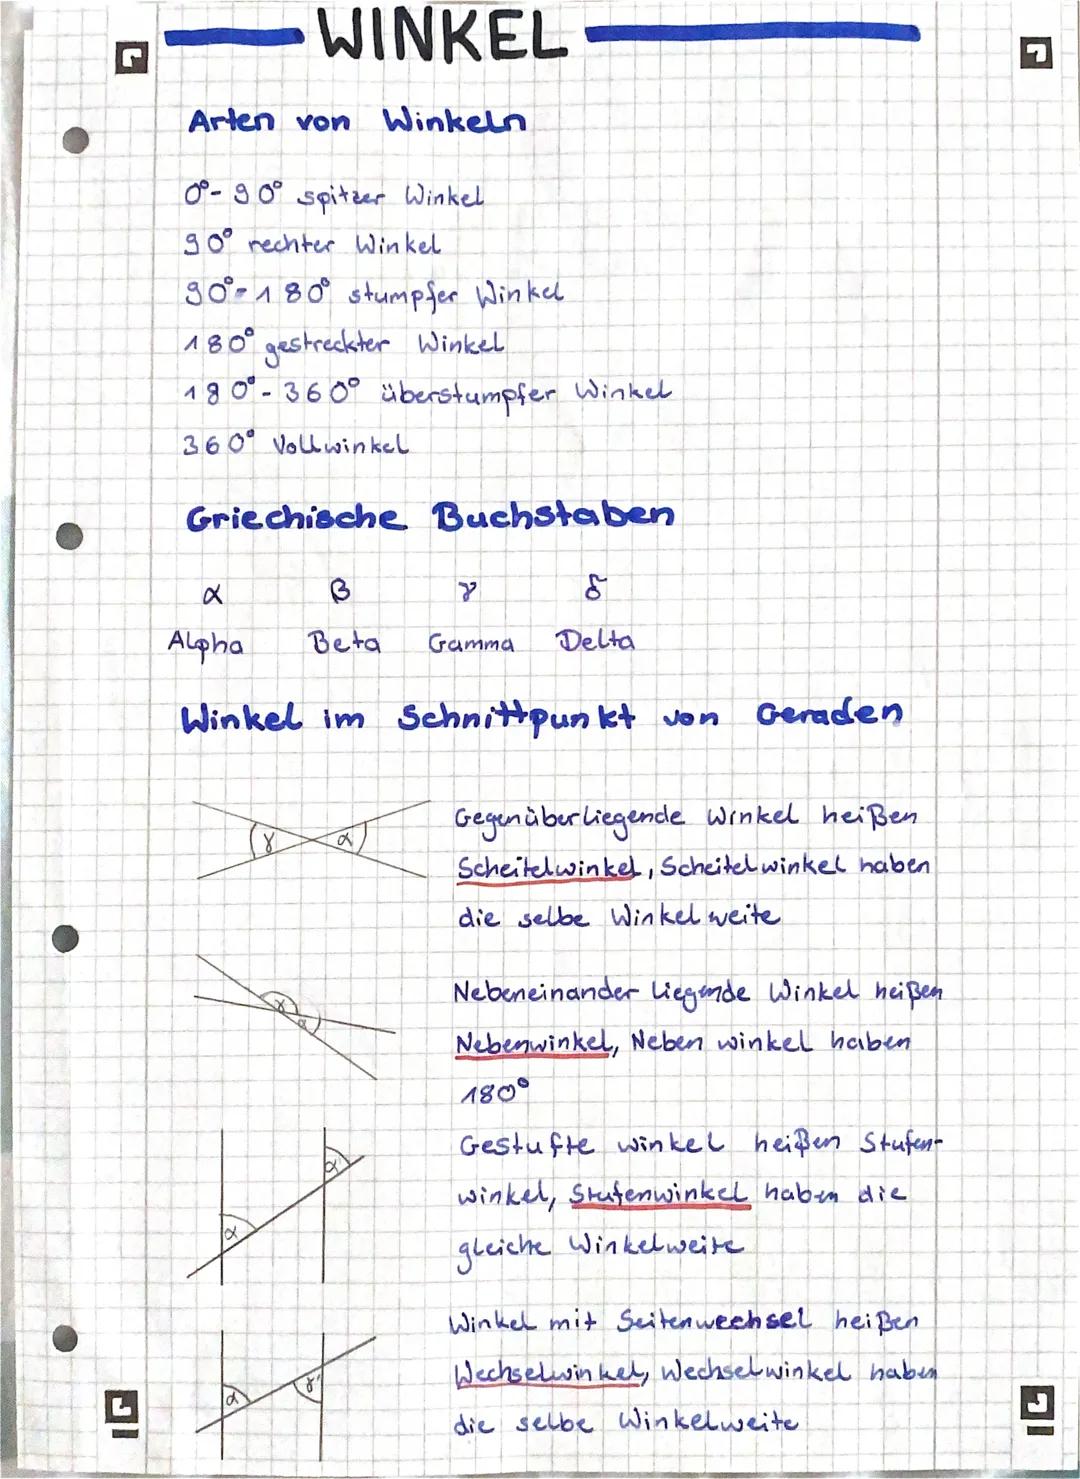 WINKEL
Arten von Winkeln
0°-90° spitzer Winkel
90° rechter Winkel
90°-180° stumpfer Winkel
180° gestreckter Winkel
180°-360° überstumpfer Winkel
360° Vollwinkel
Griechische Buchstaben
α β γ δ
Alpha Beta Gamma Delta
Winkel im Schnittpunkt von Geraden
γ α
Gegenüberliegende Winkel heißen
Scheitelwinkel, Scheitelwinkel haben
die selbe Winkelweite
Nebeneinander liegende Winkel heißen
Nebenwinkel, Neben winkel haben
180°
α
Gestufte winkel heißen Stufen-
winkel, Stufenwinkel haben die
gleiche Winkelweite
α
α
Winkel mit Seitenwechsel heißen
Wechselwinkel, Wechselwinkel haben
die selbe Winkelweite
α γ'